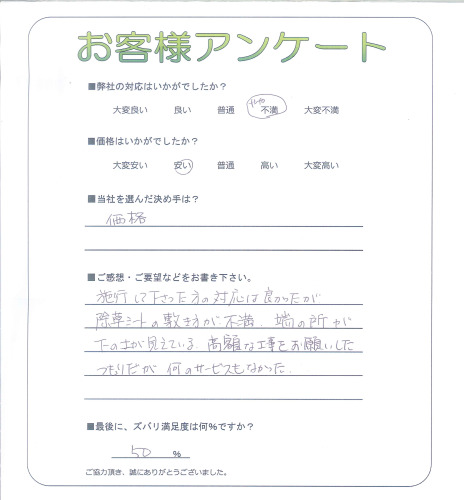 お客様アンケート
■弊社の対応はいかがでしたか？
大変良い 良い 普通 やや不満 大変不満
■価格はいかがでしたか？
大変安い 安い 普通 高い 大変高い
■当社を選んだ決め手は？
価格
■ご感想・ご要望などをお書き下さい。
施行して下さった方の対応は良かったが
除草シートの敷き方が不満、端の所が
下の土が見えている。高額な工事をお願いした
つもりだが何のサービスもなかった.
■最後に、ズバリ満足度は何%ですか？
50 %
ご協力頂き、誠にありがとうございました。